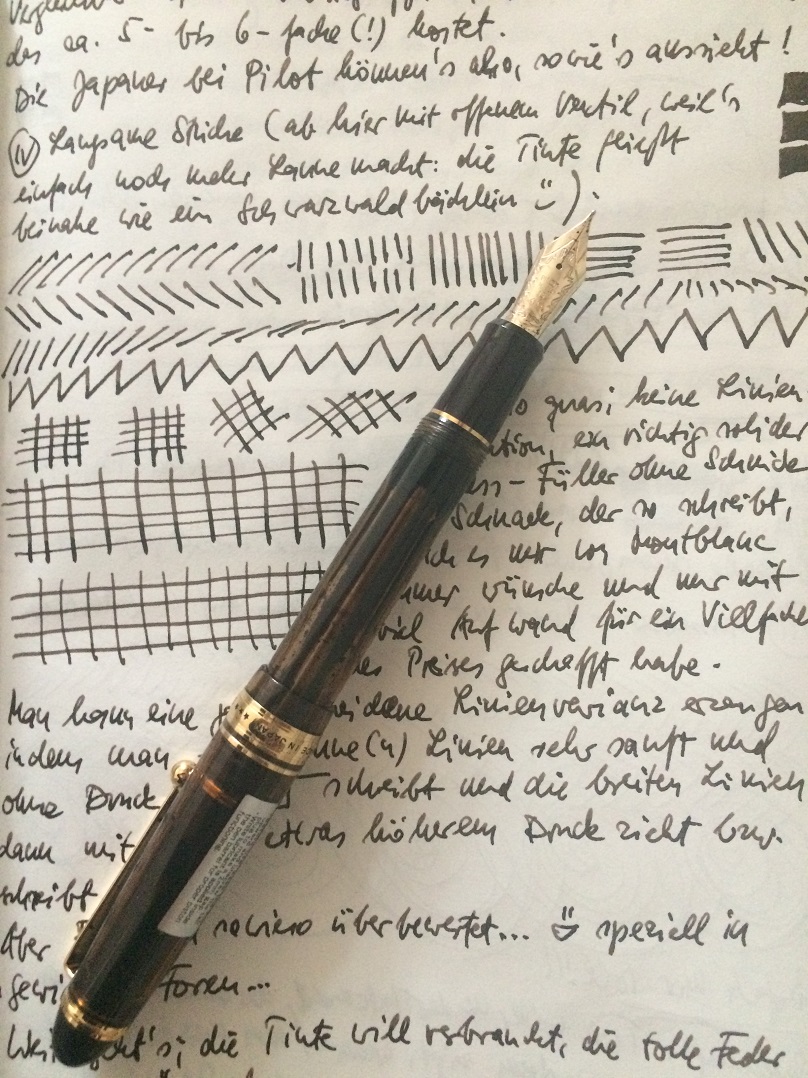 des ca. 5- bis 6-fache(!) kostet.
Die Japaner bei Pilot können's also, so wie's aussieht!
(IV) Langsame Striche (ab hier mit offenem Ventil, weil's
einfach noch mehr Laune macht: die Tinte fließt
beinahe wie ein Schwarzwaldbächlein ☺).
quasi keine Linien
ein richtig solider
-Füller ohne Schnick
Schnack, der so schreibt,
ich es mir von Montblanc
immer wünsche und nur mit
viel Aufwand für ein Vielfache
des Preises geschafft habe.
Man kann eine Linienvarianz erzeugen
indem man Linien sehr sanft und
ohne Druck schreibt und die breiten Linien
dann mit etwas höherem Druck zieht bzw.
schreibt
Aber sowieso überbewertet... ☺ speziell in
Foren...
die Tinte will verbraucht, die tolle Feder
MADE IN JAPAN